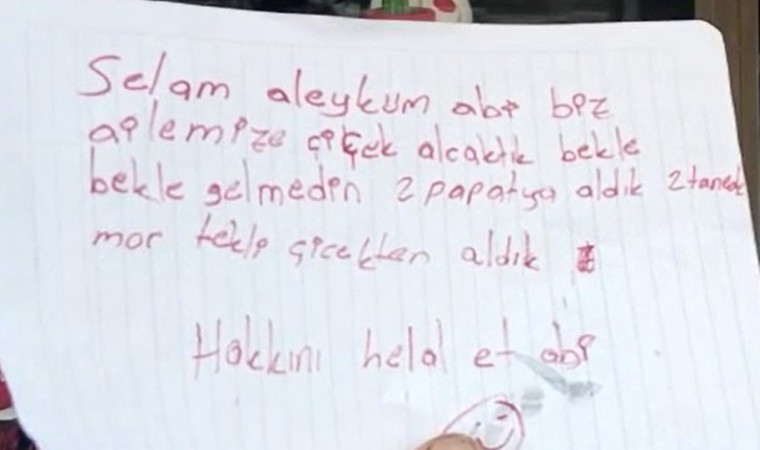 Selam aleykum abi biz
ailemize çiçek alcaktik bekle
bekle gelmeden 2 papatya aldik 2 tanede
mor tekli çicekten aldik
Hakkini helal et abi